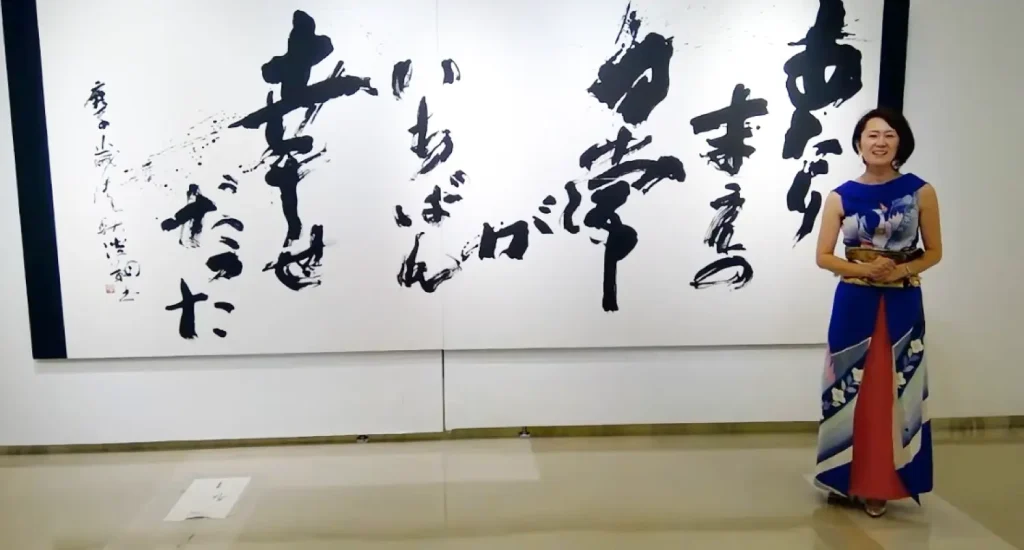 あたり
まえの
日常
が
いちばん
幸せ
だった